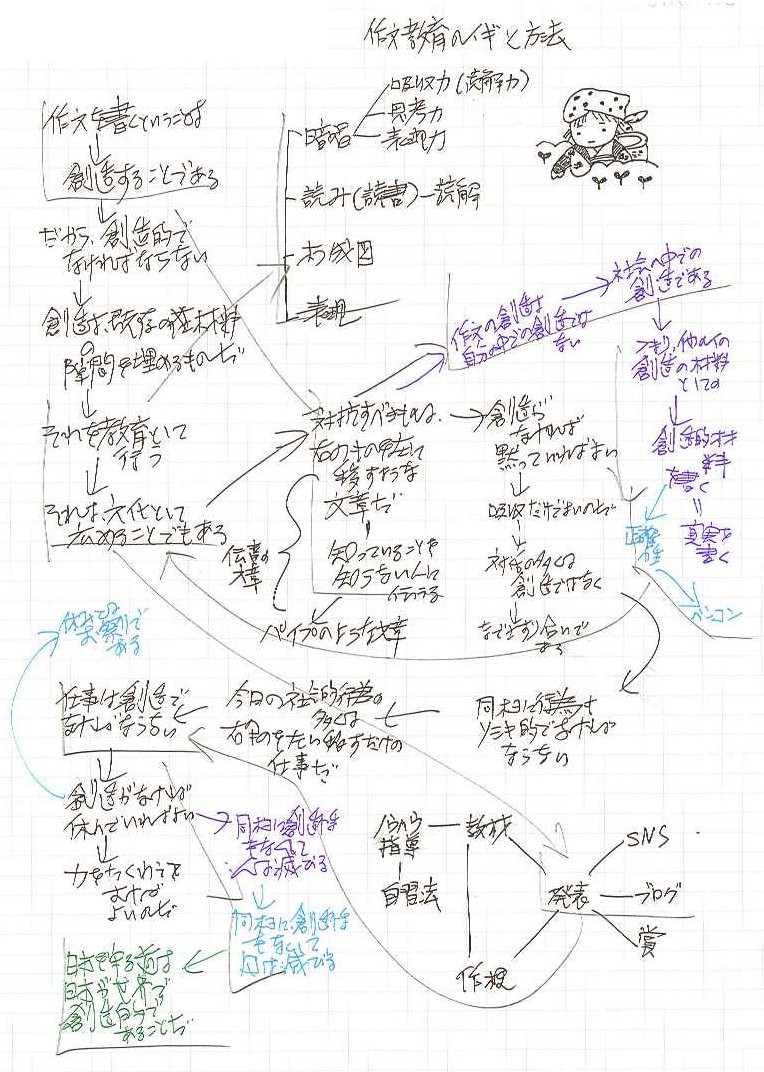 作文教育のイギと方法
作文を書くということは
創造することである
だから、創造的で
なければならない
創造は、既存の材料
の隙間を埋めるものだ
それを教育として
行う
それは、文化として
広めることでもある
暗唱
吸収力(読解力)
思考力
表現力
読み(読書)―読解
構成図
表現
作文の創造は
自分の中での創造では
ない
社会の中での
創造である
つまり、他の人の
創造の材料
としての
創造的材料
を書く
=
真実を
書く
正確性
パソコン
対抗すべきものは、
右のものを左に
移すような
文章だ
知っていることを
知らない人に
伝える
伝言の
文章
パイプのような文章
創造が
なければ
黙っていればよい
吸収だけでよいのだ
対話の多くは
創造ではなく
なぐさめ合いで
ある
同様に行為も
なければ
ならない
今日の社会的行為の
多くは
右のものを左に移すだけの
仕事だ
仕事は創造で
なければならない
創造がなければ
休んでいればよい
力をたくわえて
おけば
よいのだ
同様に創造性
をなくして
人は滅びる
同様に、創造性
をなくして
国は滅びる
日本を守る道は
日本が世界で
創造的で
あることだ
ノウハウ
指導
自習法
教材
発表
作検
SNS
ブログ
賞